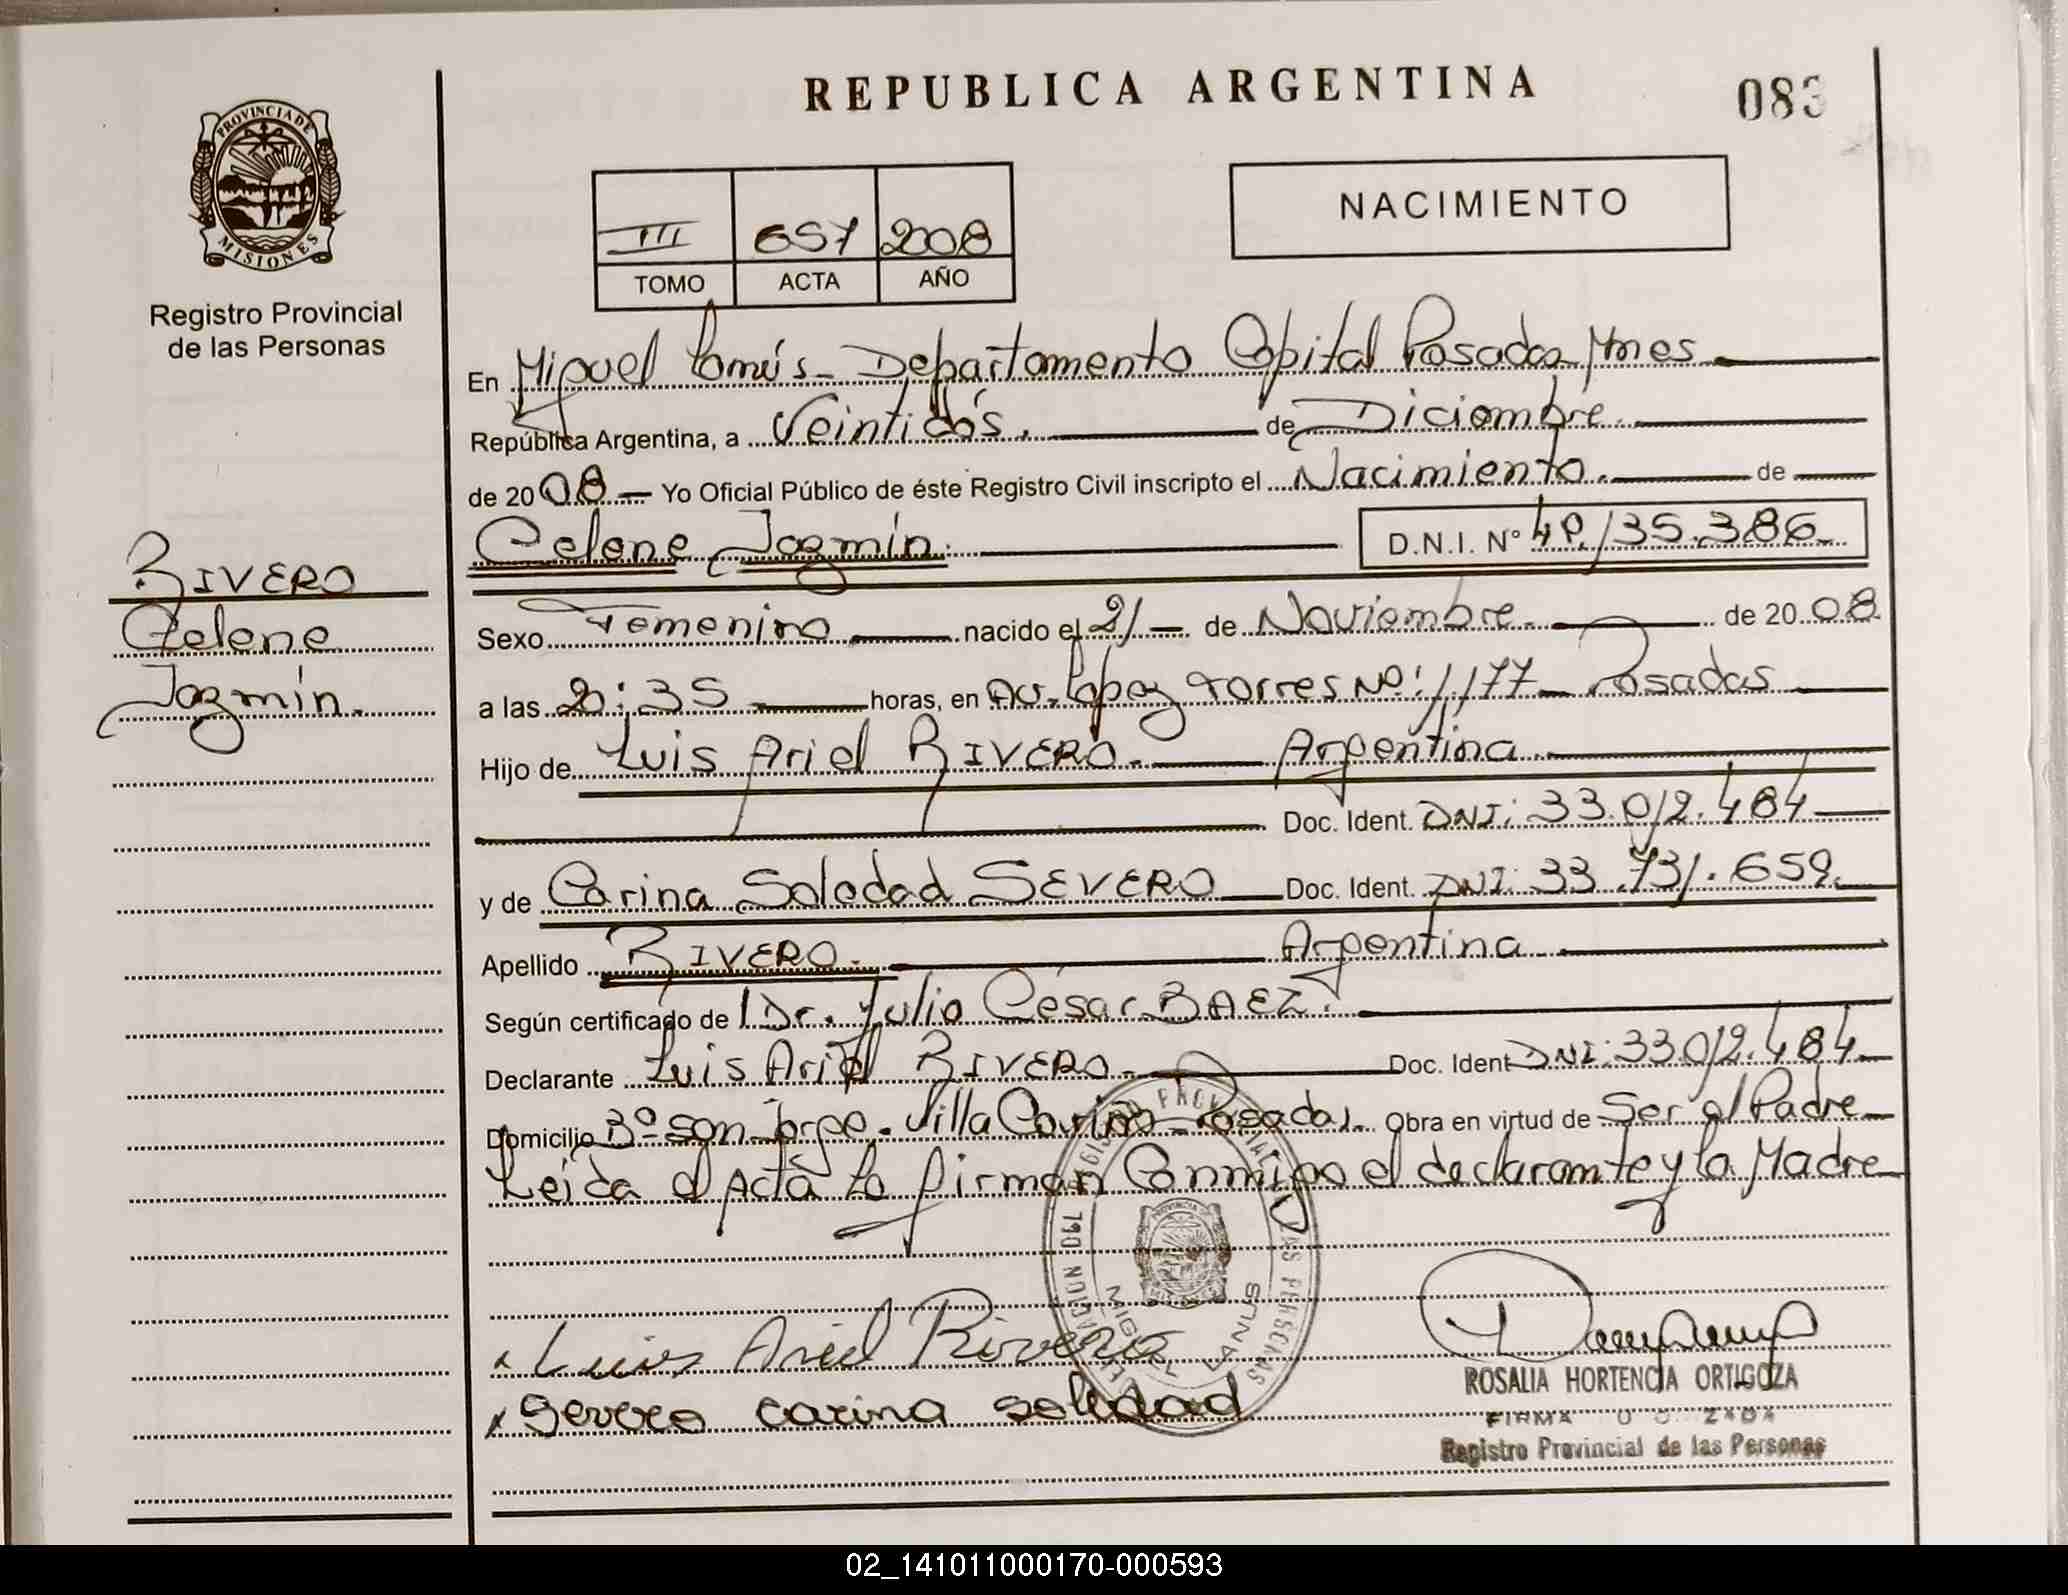 REPUBLICA ARGENTINA
083
PROVINCIA DE
MISIONES
Registro Provincial
de las Personas
NACIMIENTO
III 657 2008
TOMO ACTA AÑO
En Miguel Lanús - Departamento Capital Posadas Mnes
República Argentina, a Veintidós. de Diciembre.
de 2008 Yo Oficial Público de éste Registro Civil inscripto el Nacimiento. de
Celene Jazmín. D.N.I. Nº 49.135.386
RIVERO
Celene
Jazmín.
Sexo Femenino nacido el 21 de Noviembre. de 2008
a las 2:35 horas, en Av. López Torres Nº: 1177 Posadas
Hijo de Luis Ariel RIVERO. Argentina
Doc. Ident. DNI: 33.012.484
y de Carina Soledad SEVERO Doc. Ident. DNI: 33.731.659.
Apellido RIVERO. Argentina
Según certificado de Dr. Julio César BAEZ.
Declarante Luis Ariel RIVERO. Doc. Ident DNI: 33.012.484
Domicilio Bº San Jorge. Villa Cariño - Posadas. Obra en virtud de Ser el Padre
Leida el Acta la firman Conmigo el declarante y la Madre
MIGUEL LANUS
Luis Ariel Rivero
Severo carina soledad
ROSALIA HORTENCIA ORTIGOZA
FIRMA
Registro Provincial de las Personas
02_141011000170-000593